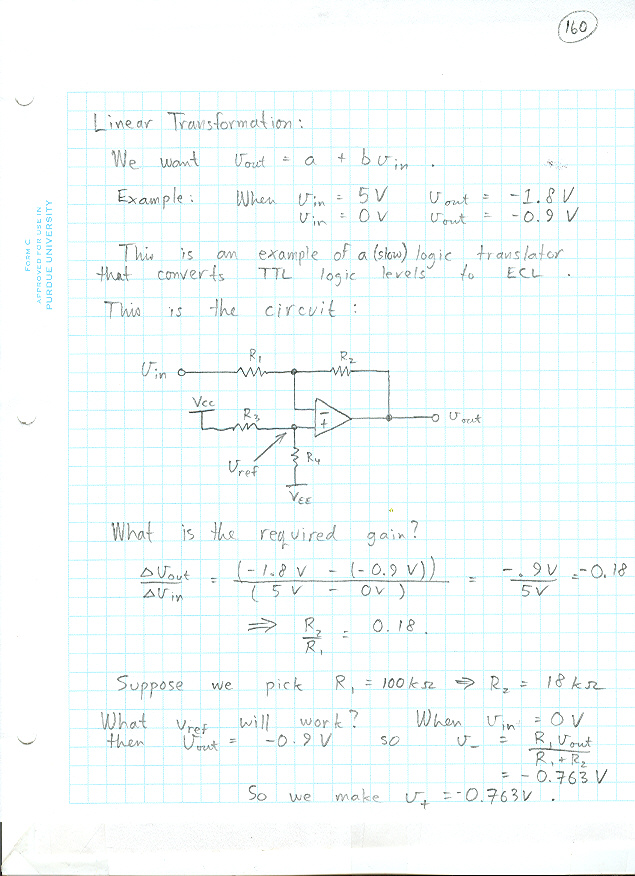 160
FORM C
APPROVED FOR USE IN
PURDUE UNIVERSITY
Linear Transformation:
We want Vout = a + b Vin .
Example: When Vin = 5 V Vout = -1.8 V
Vin = 0 V Vout = -0.9 V
This is an example of a (slow) logic translator
that converts TTL logic levels to ECL .
This is the circuit :
R1 R2
Vin
Vcc
R3
− + Vout
Vref R4
VEE
What is the required gain?
ΔVout / ΔVin = (-1.8 V - (-0.9 V)) / (5 V - 0V) = -.9V / 5V = -0.18
⇒ R2 / R1 = 0.18 .
Suppose we pick R1 = 100 kΩ ⇒ R2 = 18 kΩ
What Vref will work? When Vin = 0 V
then Vout = -0.9 V so V− = R1 Vout / R1 + R2
= -0.763 V
So we make V+ = -0.763V .